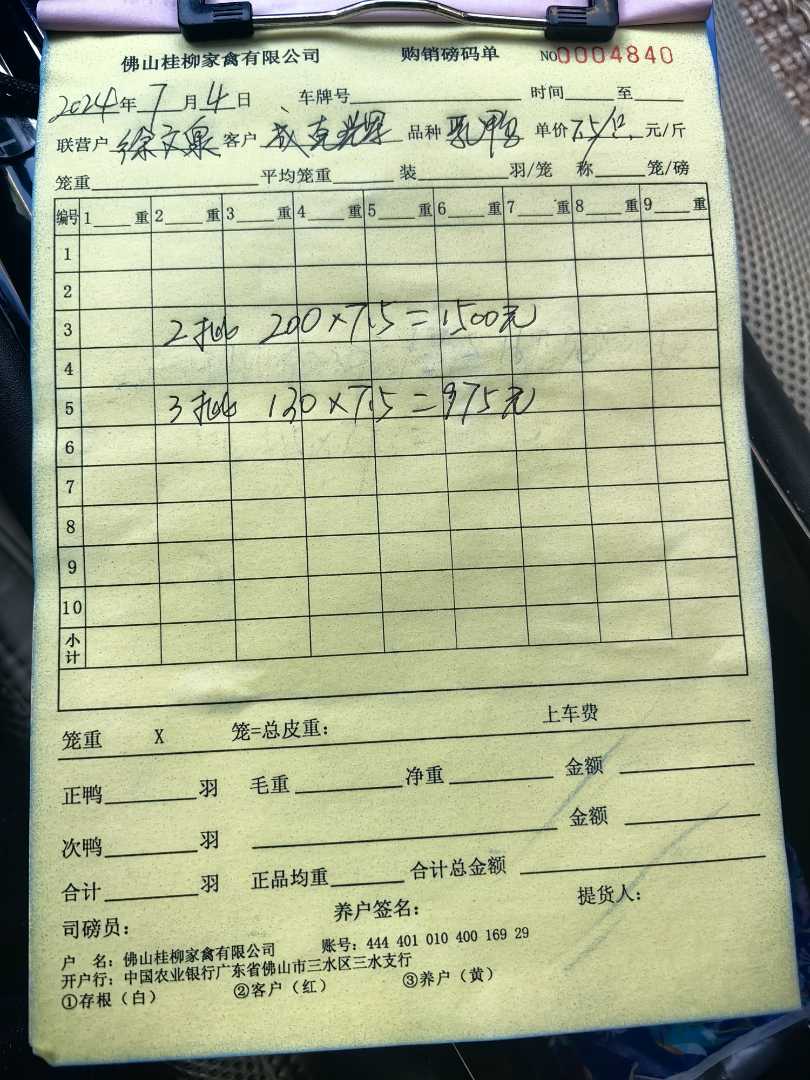 佛山桂柳家禽有限公司 购销磅码单 NO0004840
2024年7月4日 车牌号 时间 至
联营户 徐文泉 客户 成克辉 品种 乳鸭 单价 7.5/只 元/斤
笼重 平均笼重 装 羽/笼 称 笼/磅
编号 1 重 2 重 3 重 4 重 5 重 6 重 7 重 8 重 9 重
1
2
3 2批 200×7.5=1500元
4
5 3批 130×7.5=975元
6
7
8
9
10
小计
笼重 X 笼=总皮重: 上车费
正鸭 羽 毛重 净重 金额
次鸭 羽 金额
合计 羽 正品均重 合计总金额
司磅员: 养户签名: 提货人:
户 名: 佛山桂柳家禽有限公司 账号: 444 401 010 400 169 29
开户行: 中国农业银行广东省佛山市三水区三水支行
①存根(白) ②客户(红) ③养户(黄)